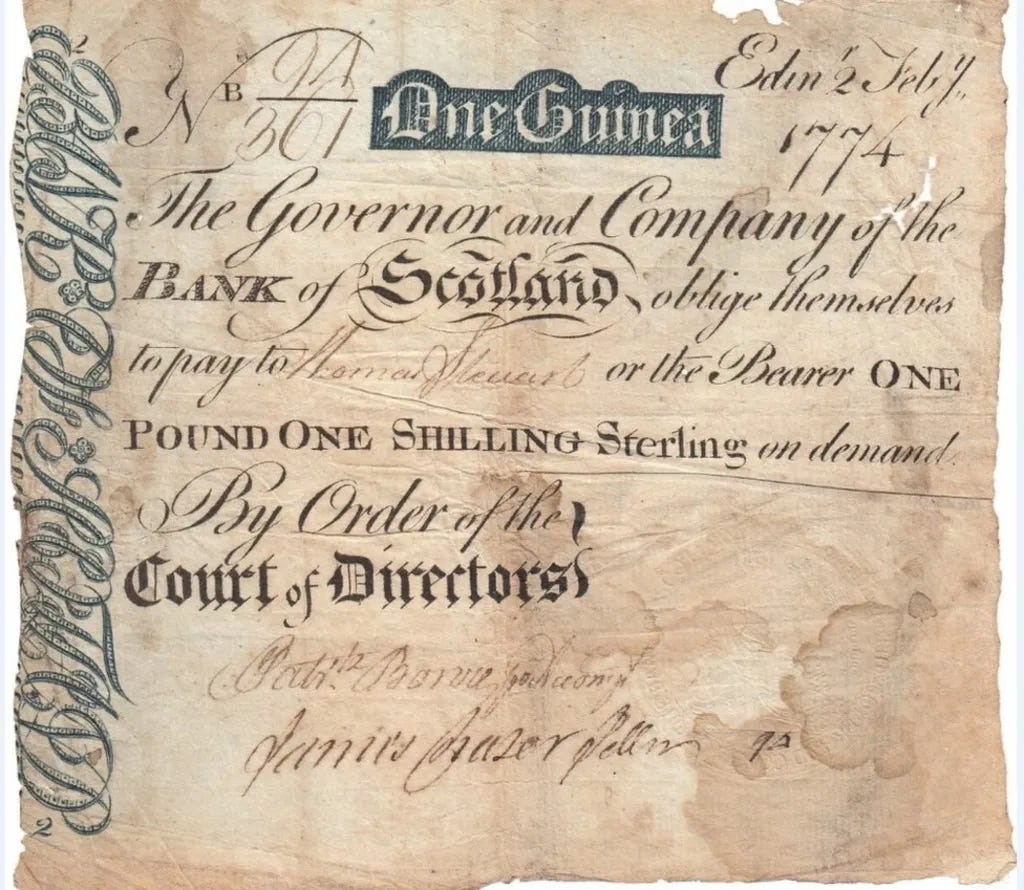 Nº B 94/361 One Guinea Edinr 2 Feby.
1774
The Governor and Company of the
BANK of Scotland, oblige themselves
to pay to Thomas Steuart or the Bearer ONE
POUND ONE SHILLING Sterling on demand
By Order of the
Court of Directors
James Fraser Teller 94